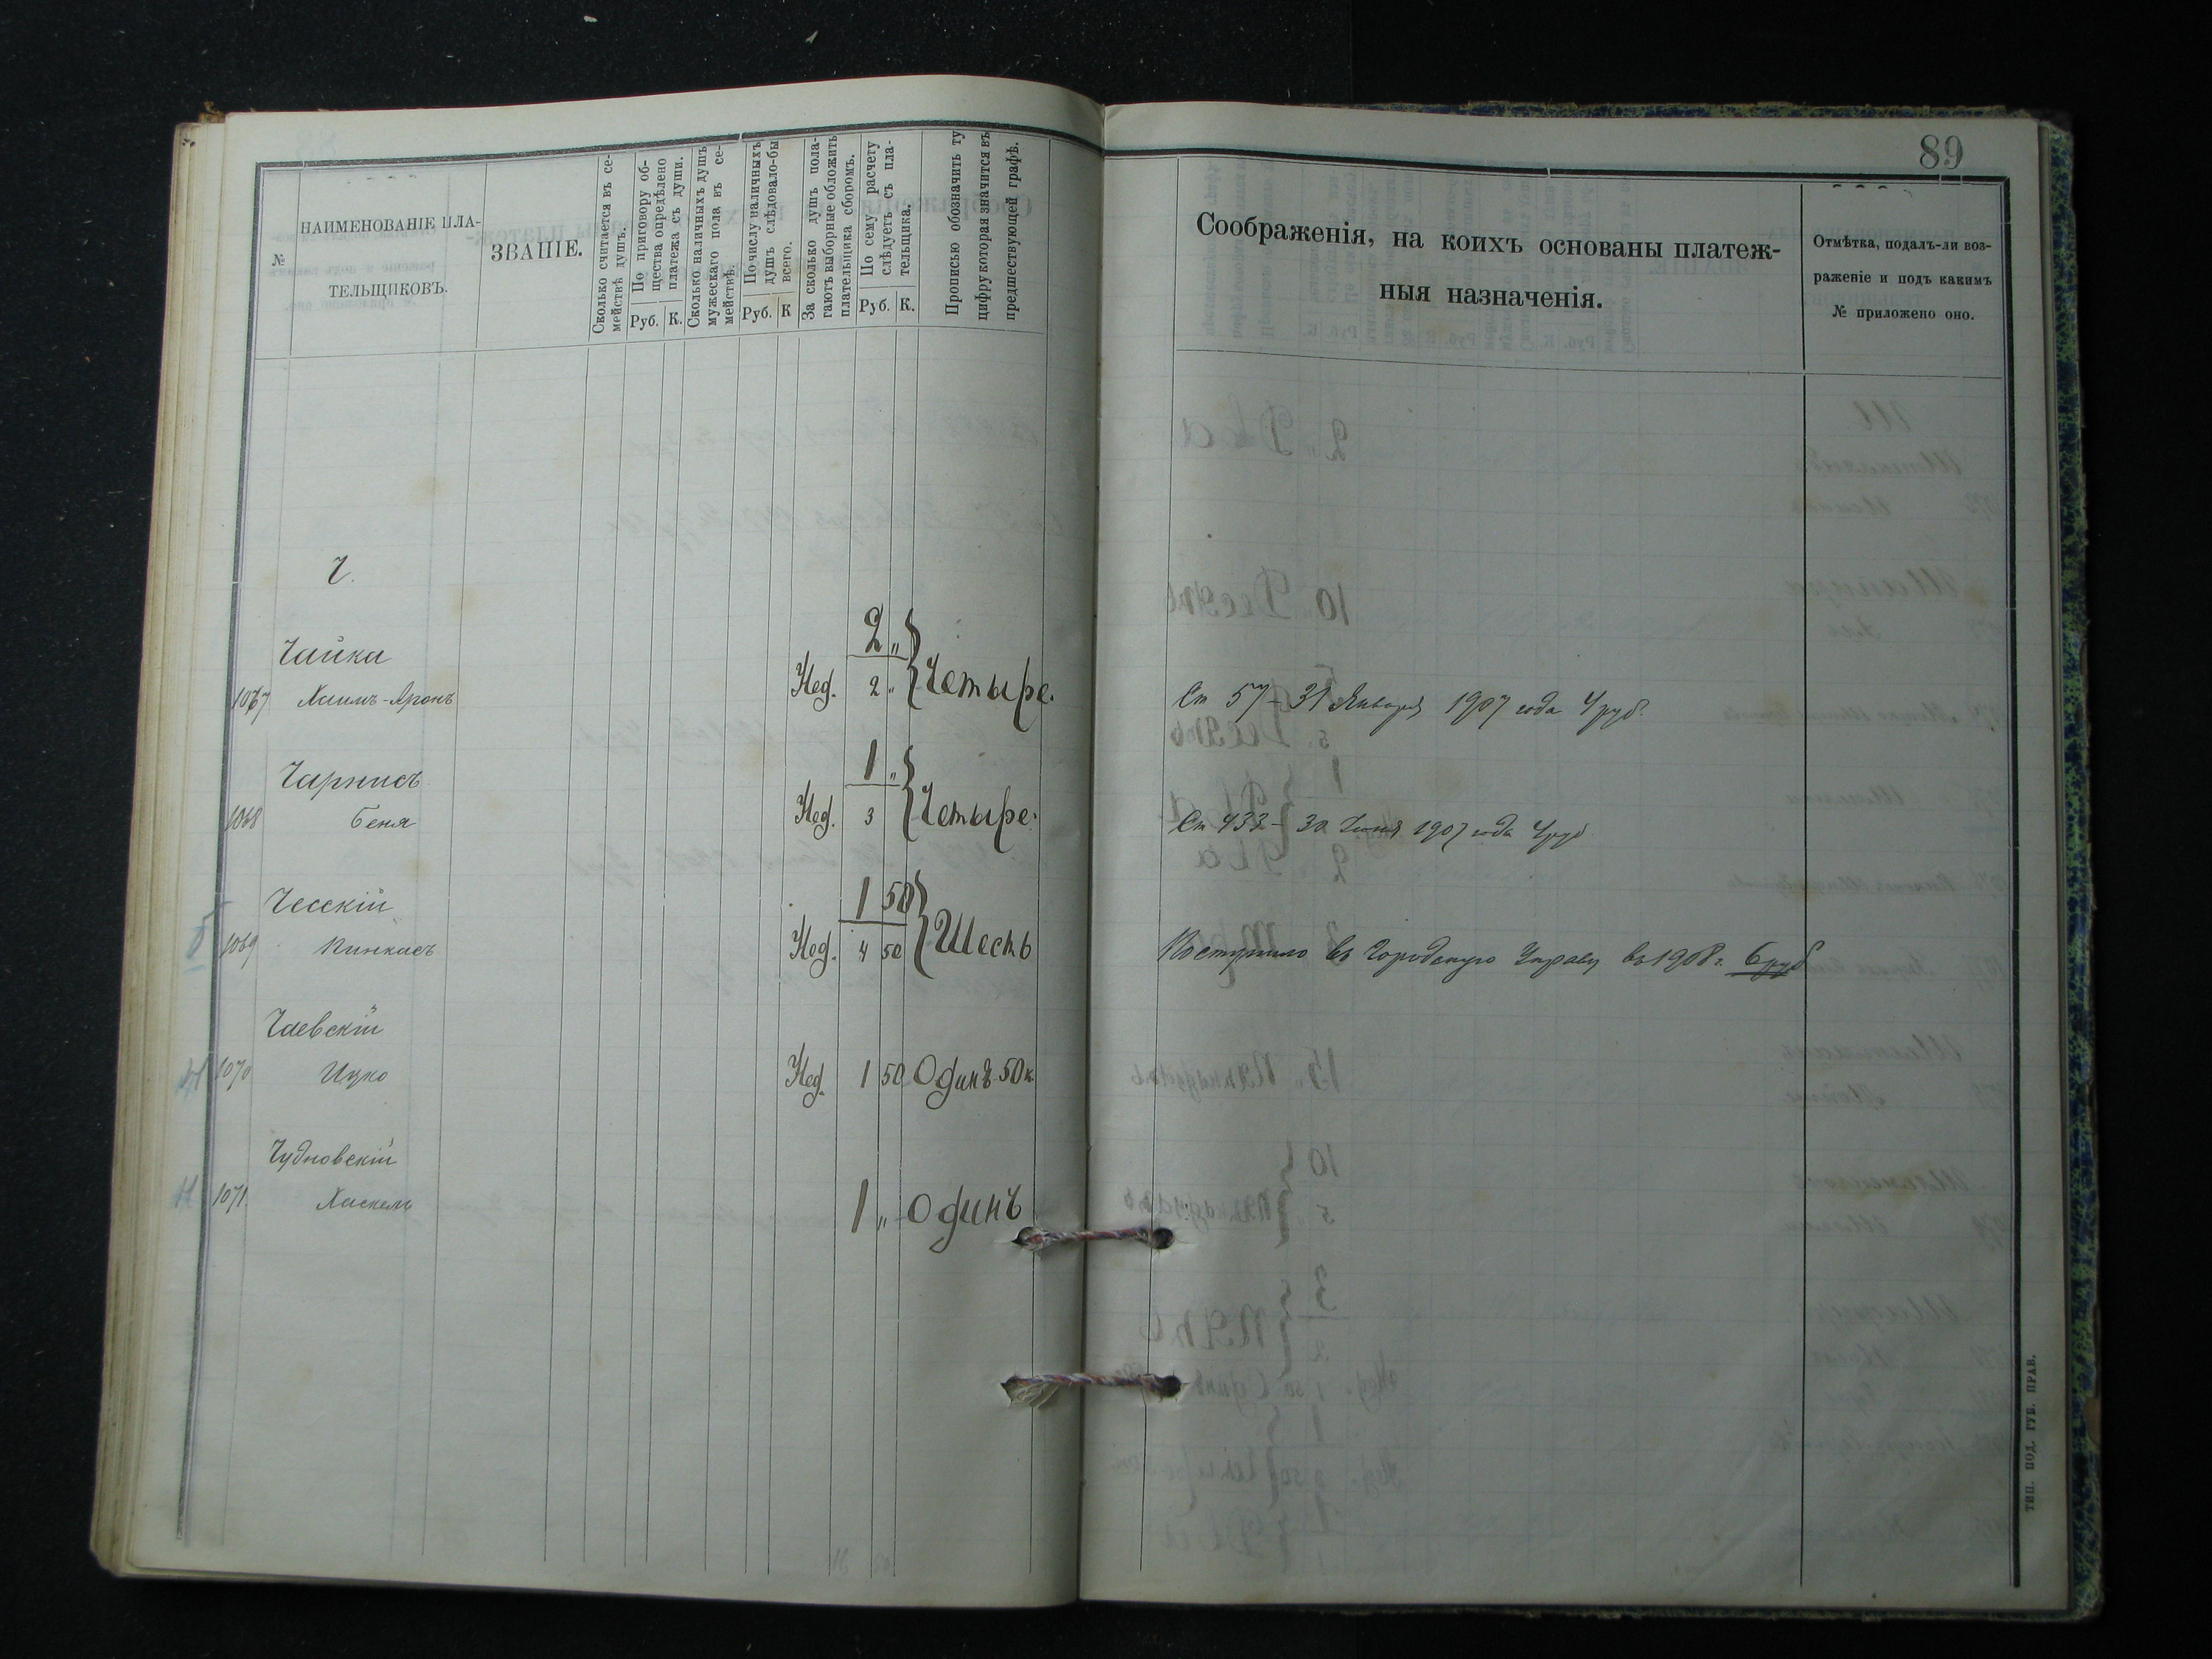 №
НАИМЕНОВАНІЕ ПЛА-
ТЕЛЬЩИКОВЪ.
ЗВАНІЕ.
Сколько считается въ се-
мействѣ душъ.
По приговору об-
щества опредѣлено
платежа съ души.
Руб. К.
Сколько наличныхъ душъ
мужескаго пола въ се-
мействѣ.
По числу наличныхъ
душъ слѣдовало-бы
всего.
Руб. К
За сколько душъ пола-
гаютъ выборные обложить
плательщика сборомъ.
По сему расчету
слѣдуетъ съ пла-
тельщика.
Руб. К.
Прописью обозначить ту
цифру которая значится въ
предшествующей графѣ.
Ч.
Чайка 2 "
1067 Хаимъ-Аронъ Нед. 2 " Четыре.
Чарнисъ 1 "
1068 Беня Нед. 3 Четыре.
Чесскій 1 50
1069 Пинкасъ Нед. 4 50 Шесть
Чаевскій
1070 Ицко Нед. 1 50 Одинъ 50 к.
Чудновскій
1071 Хаскель 1 " Одинъ
89
Соображенія, на коихъ основаны платеж-
ныя назначенія.
Отмѣтка, подалъ-ли воз-
раженіе и подъ какимъ
№ приложено оно.
Ст 57 – 31 Января 1907 года 4 руб.
Ст 433 – 30 Іюня 1907 года 4 руб
Поступило въ Городскую Управу въ 1908 г. 6 руб
ТИП. ПОД. ГУБ. ПРАВ.